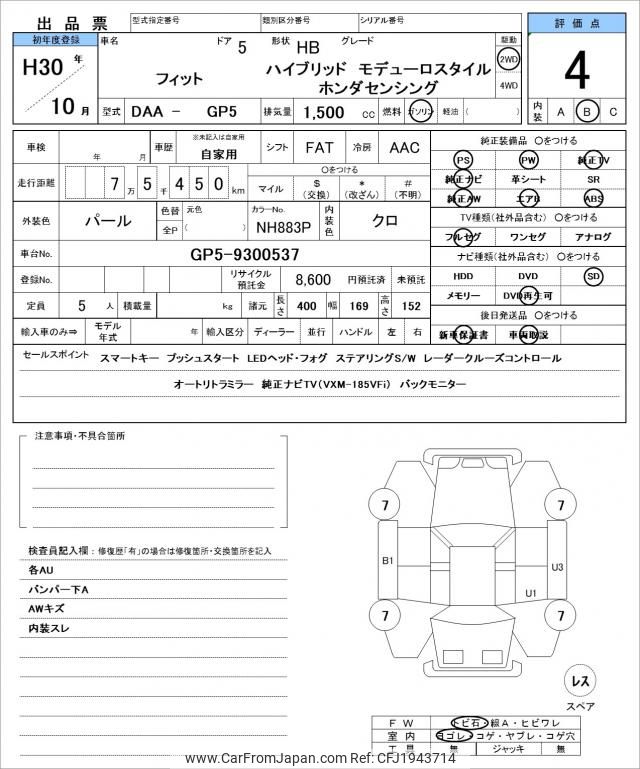 出品票 型式指定番号 類別区分番号 シリアル番号 評価点
初年度登録 車名 ドア 5 形状 HB グレード 駆動
H30 年 フィット ハイブリッド モデューロスタイル 2WD 4
10 月 ホンダセンシング 4WD
型式 DAA － GP5 排気量 1,500 cc 燃料 ガソリン 軽油 ( ) 内装 A B C
車検 年 月 車歴 ※未記入は自家用 自家用 シフト FAT 冷房 AAC 純正装備品 〇をつける
PS PW 純正TV
走行距離 7 万 5 千 4 5 0 km 〇をつける 純正ナビ 革シート SR
マイル $ (交換) * (改ざん) # (不明) 純正AW エアB ABS
外装色 パール 色替 元色 カラーNo. 内装色 クロ TV種類(社外品含む) 〇をつける
全P ( ) NH883P フルセグ ワンセグ アナログ
車台No. GP5-9300537 ナビ種類(社外品含む) 〇をつける
登録No. リサイクル預託金 8,600 円預託済 未預託 HDD DVD SD
定員 5 人 積載量 kg 諸元 長さ 400 幅 169 高さ 152 メモリー DVD再生可
後日発送品 〇をつける
輸入車のみ⇒ モデル年式 年 輸入区分 ディーラー 並行 ハンドル 左 右 新車保証書 車両取説
セールスポイント スマートキー プッシュスタート LEDヘッド・フォグ ステアリングS/W レーダークルーズコントロール
オートリトラミラー 純正ナビTV(VXM-185VFi) バックモニター
注意事項・不具合箇所
検査員記入欄：修復歴「有」の場合は修復箇所・交換箇所を記入
各AU
バンパー下A
AWキズ
内装スレ
7 7
B1 U3
U1
7 7
レス
スペア
FW トビ石・線A・ヒビワレ
室内 ヨゴレ・コゲ・ヤブレ・コゲ穴
工具 無 ジャッキ 無
www.CarFromJapan.com Ref: CFJ1943714